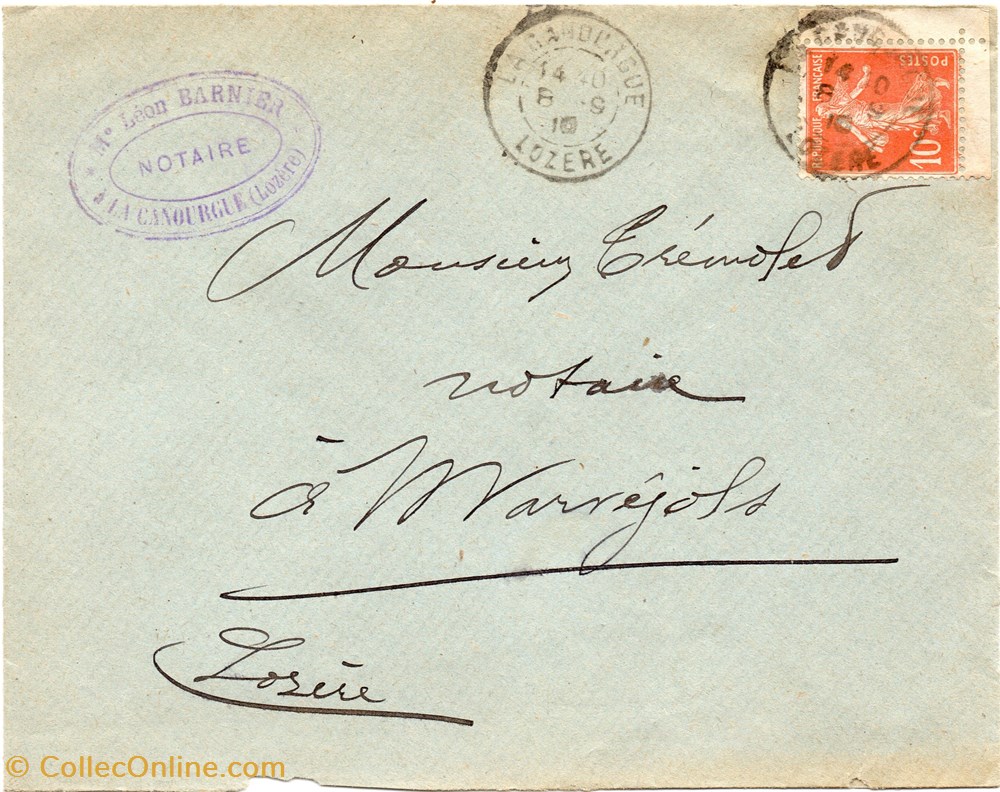 Mᵉ Léon BARNIER
NOTAIRE
* à LA CANOURGUE (Lozère) *
LA CANOURGUE
14 40
8 - 9
10
LOZÈRE
LA CANOURGUE
14 40
10
LOZÈRE
REPUBLIQUE FRANÇAISE
POSTES
10c
Monsieur Trémolet
notaire
à Marvéjols
Lozère
© CollecOnline.com